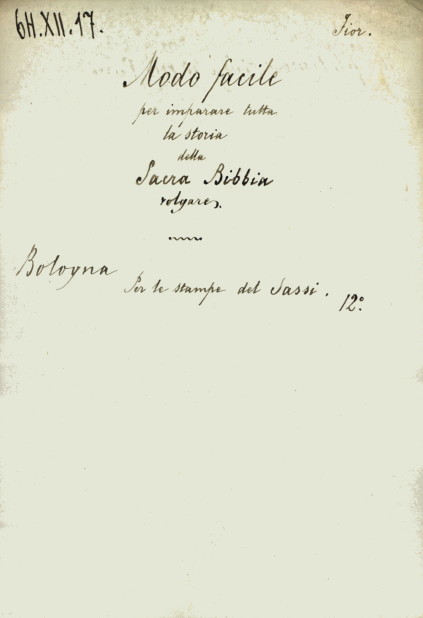 6H.XII.17.
Fior.
Modo facile
per imparare tutta
la storia
della
Sacra Bibbia
volgare.
Bologna
Per le stampe del Sassi.
12º.